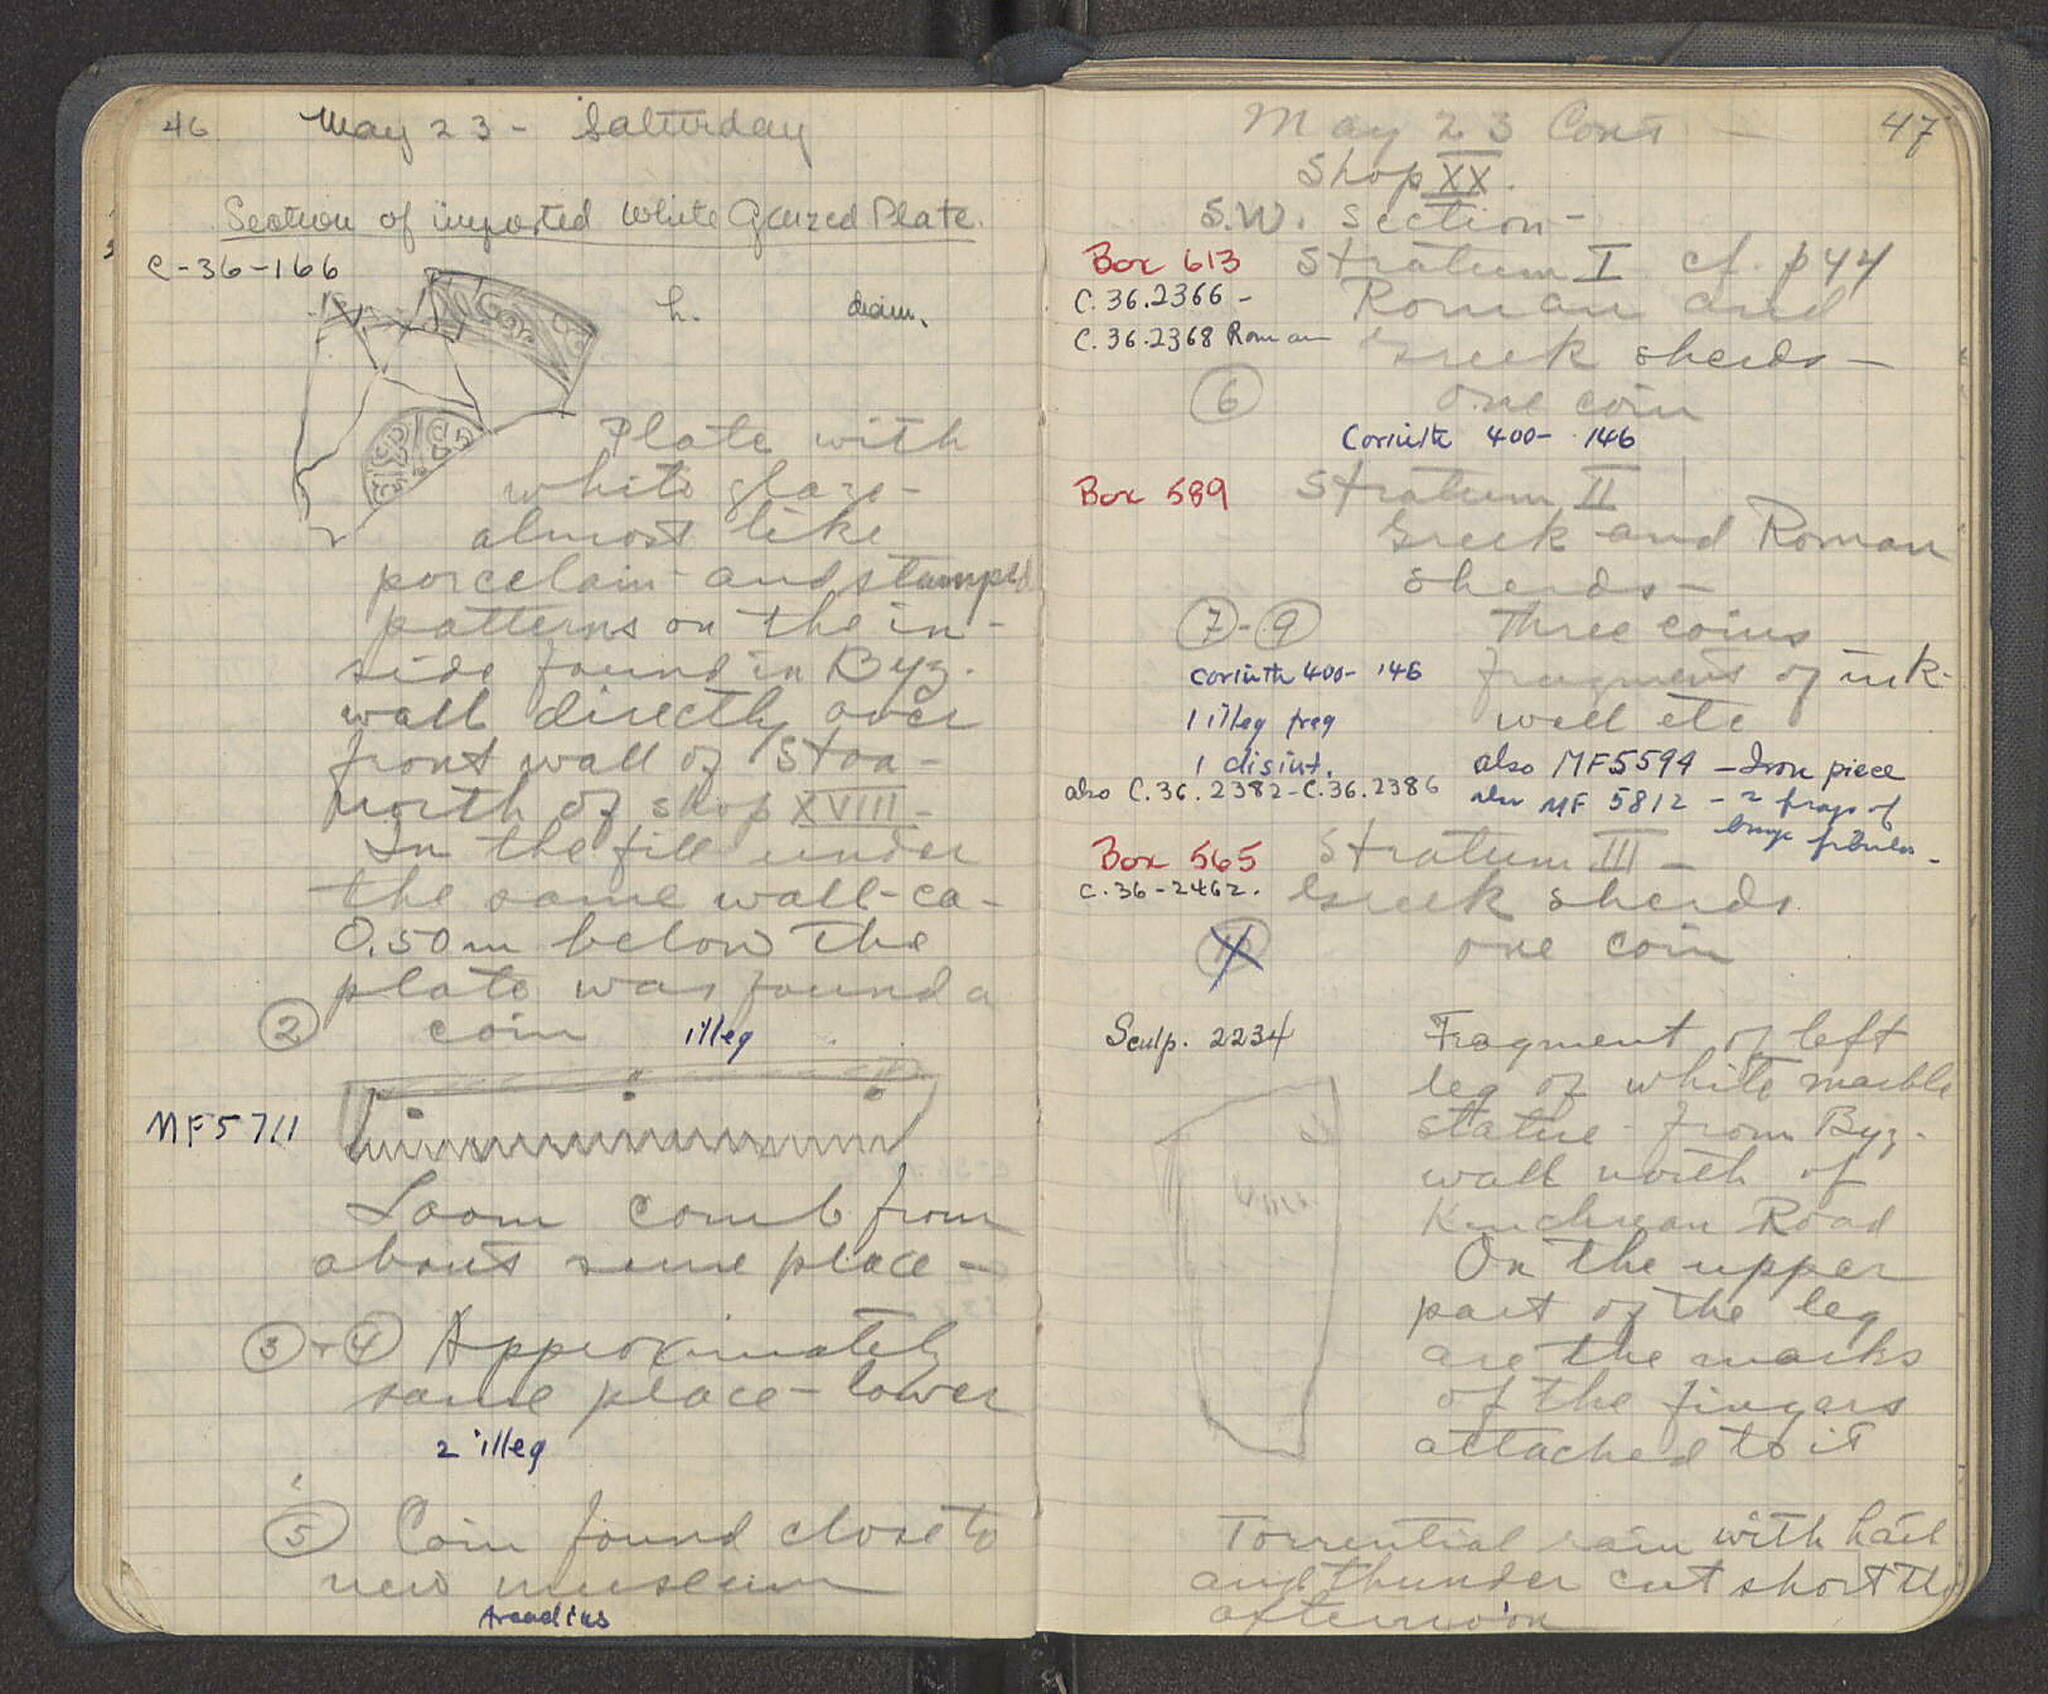 46 May 23 - Satturday
Section of imported White Glazed Plate.
C-36-166
h. diam.
Plate with
white glaze -
almost like
porcelain - and stamped
patterns on the in-
side found in Byz.
wall directly over
front wall of Stoa -
north of shop XVIII -
In the fill under
the same wall - ca -
0.50 m below the
plate was found a
② coin illeg
MF 5711
Loom comb from
about same place -
③ + ④ Approximately
same place - lower
2 illeg
⑤ Coin found close to
new museum
Arcadius
May 23 Cont - 47
Shop XX.
S.W. Section -
Box 613 Stratum I cf. p 44
C.36.2366 - Roman and
C.36.2368 Roman Greek sherds -
⑥ one coin
Corinth 400- 146
Box 589 Stratum II
Greek and Roman
sherds -
⑦-⑨ Three coins
corinth 400- 146 fragment of ink-
1 illeg freg well etc
1 disint. also MF5594 - Iron piece
also C.36.2382-C.36.2386 also MF 5812 - 2 frags of
bronze fibulae -
Box 565 Stratum III -
C.36-2462. Greek sherds
⑩ one coin
Sculp. 2234 Fragment of left
leg of white marble
statue - from Byz.
wall north of
Kenchrean Road
On the upper
part of the leg
are the marks
of the fingers
attached to it
Torrential rain with hail
and thunder cut short the
afternoon